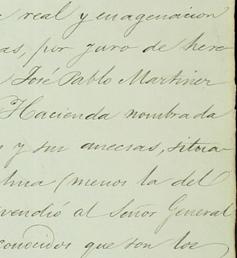 real y enagenacion
as, por juro de here
José Pablo Martinez
Hacienda nombrada
y sus anecsas, situa-
(menos la del
vendió al Señor General
conocidos que son los